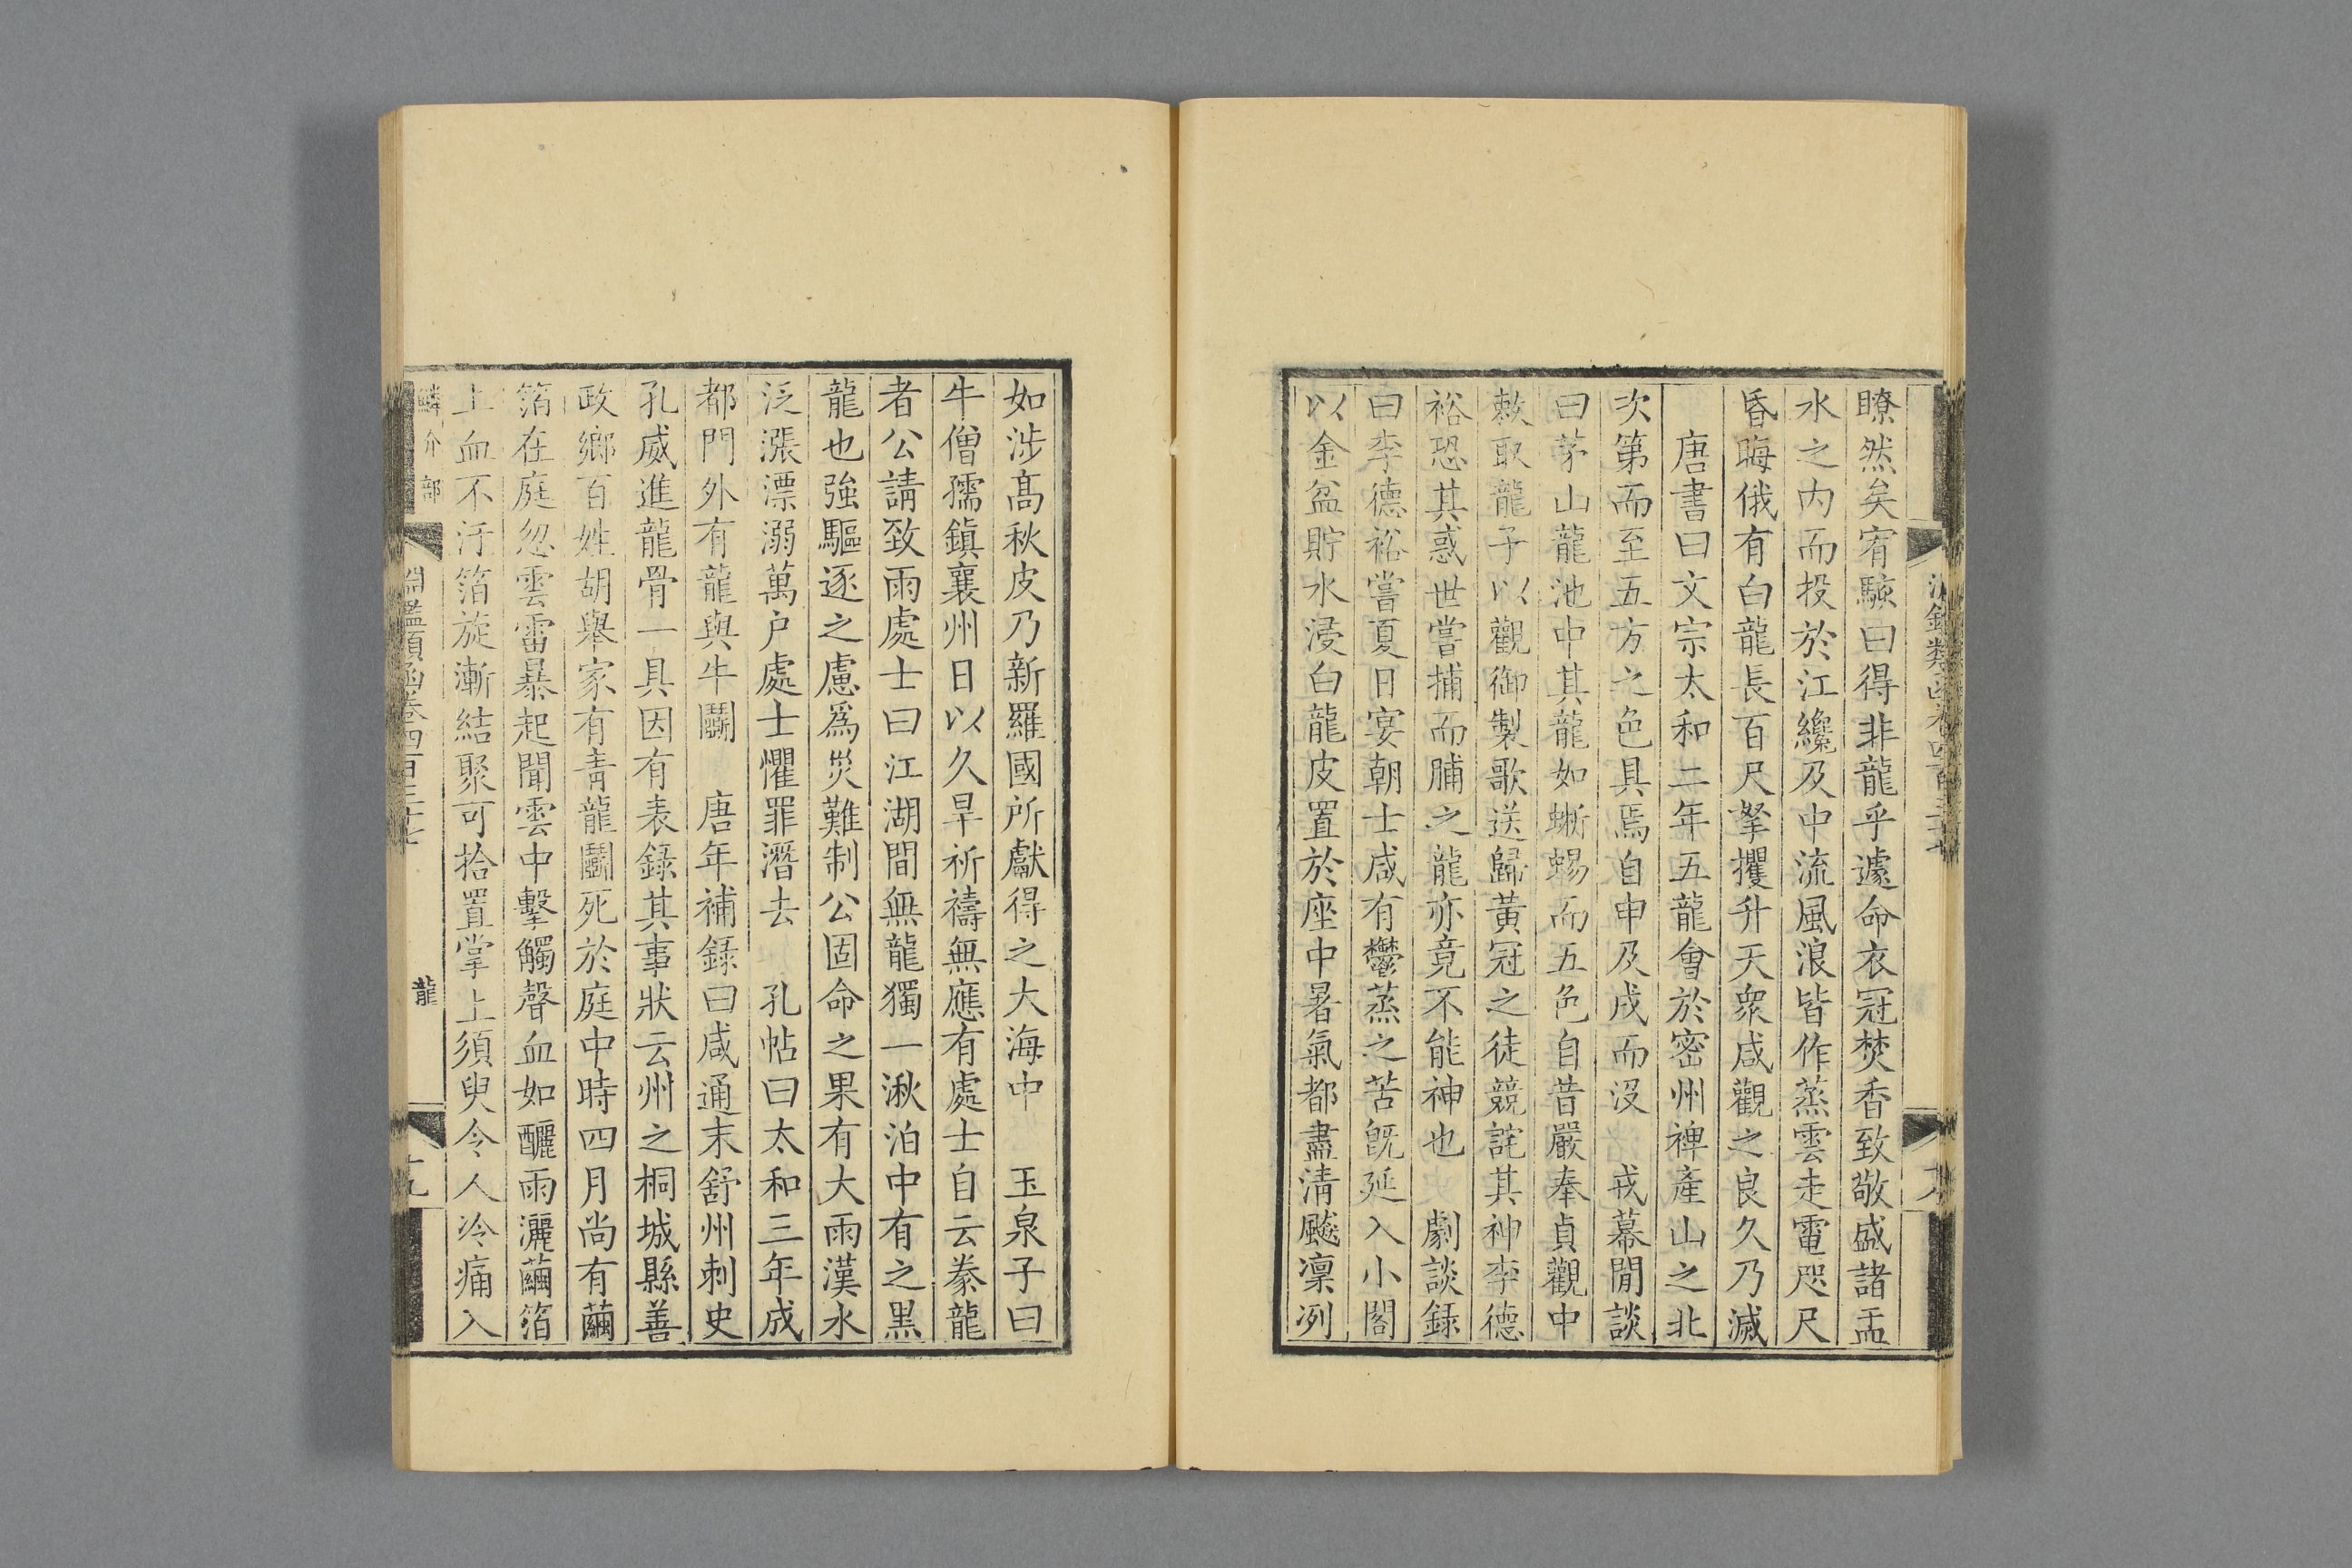 瞭然矣宥駭曰得非龍乎遽命衣冠焚香致敬盛諸盂
水之內而投於江纔及中流風浪皆作蒸雲走電咫尺
昏晦俄有白龍長百尺拏攫升天衆咸觀之良久乃滅
唐書曰文宗太和二年五龍會於密州禆產山之北
次第而至五方之色具焉自申及戌而沒　戎幕閒談
曰茅山龍池中其龍如蜥蜴而五色自昔嚴奉貞觀中
敕取龍子以觀御製歌送歸黃冠之徒競詫其神李德
裕恐其惑世嘗捕而脯之龍亦竟不能神也　劇談錄
曰李德裕嘗夏日宴朝士咸有鬱蒸之苦旣延入小閣
以金盆貯水浸白龍皮置於座中暑氣都盡清飈凜冽
如涉高秋皮乃新羅國所獻得之大海中　玉泉子曰
牛僧孺鎮襄州日以久旱祈禱無應有處士自云豢龍
者公請致雨處士曰江湖間無龍獨一湫泊中有之黑
龍也強驅逐之慮爲災難制公固命之果有大雨漢水
泛漲漂溺萬户處士懼罪潛去　孔帖曰太和三年成
都門外有龍與牛鬭　唐年補錄曰咸通末舒州刺史
孔威進龍骨一具因有表錄其事狀云州之桐城縣善
政鄉百姓胡舉家有青龍鬭死於庭中時四月尚有繭
箔在庭忽雲雷暴起聞雲中擊觸聲血如釃雨灑繭箔
上血不汙箔旋漸結聚可拾置掌上須臾令人冷痛入
鱗介部　淵鑑類函卷四百三十七　龍